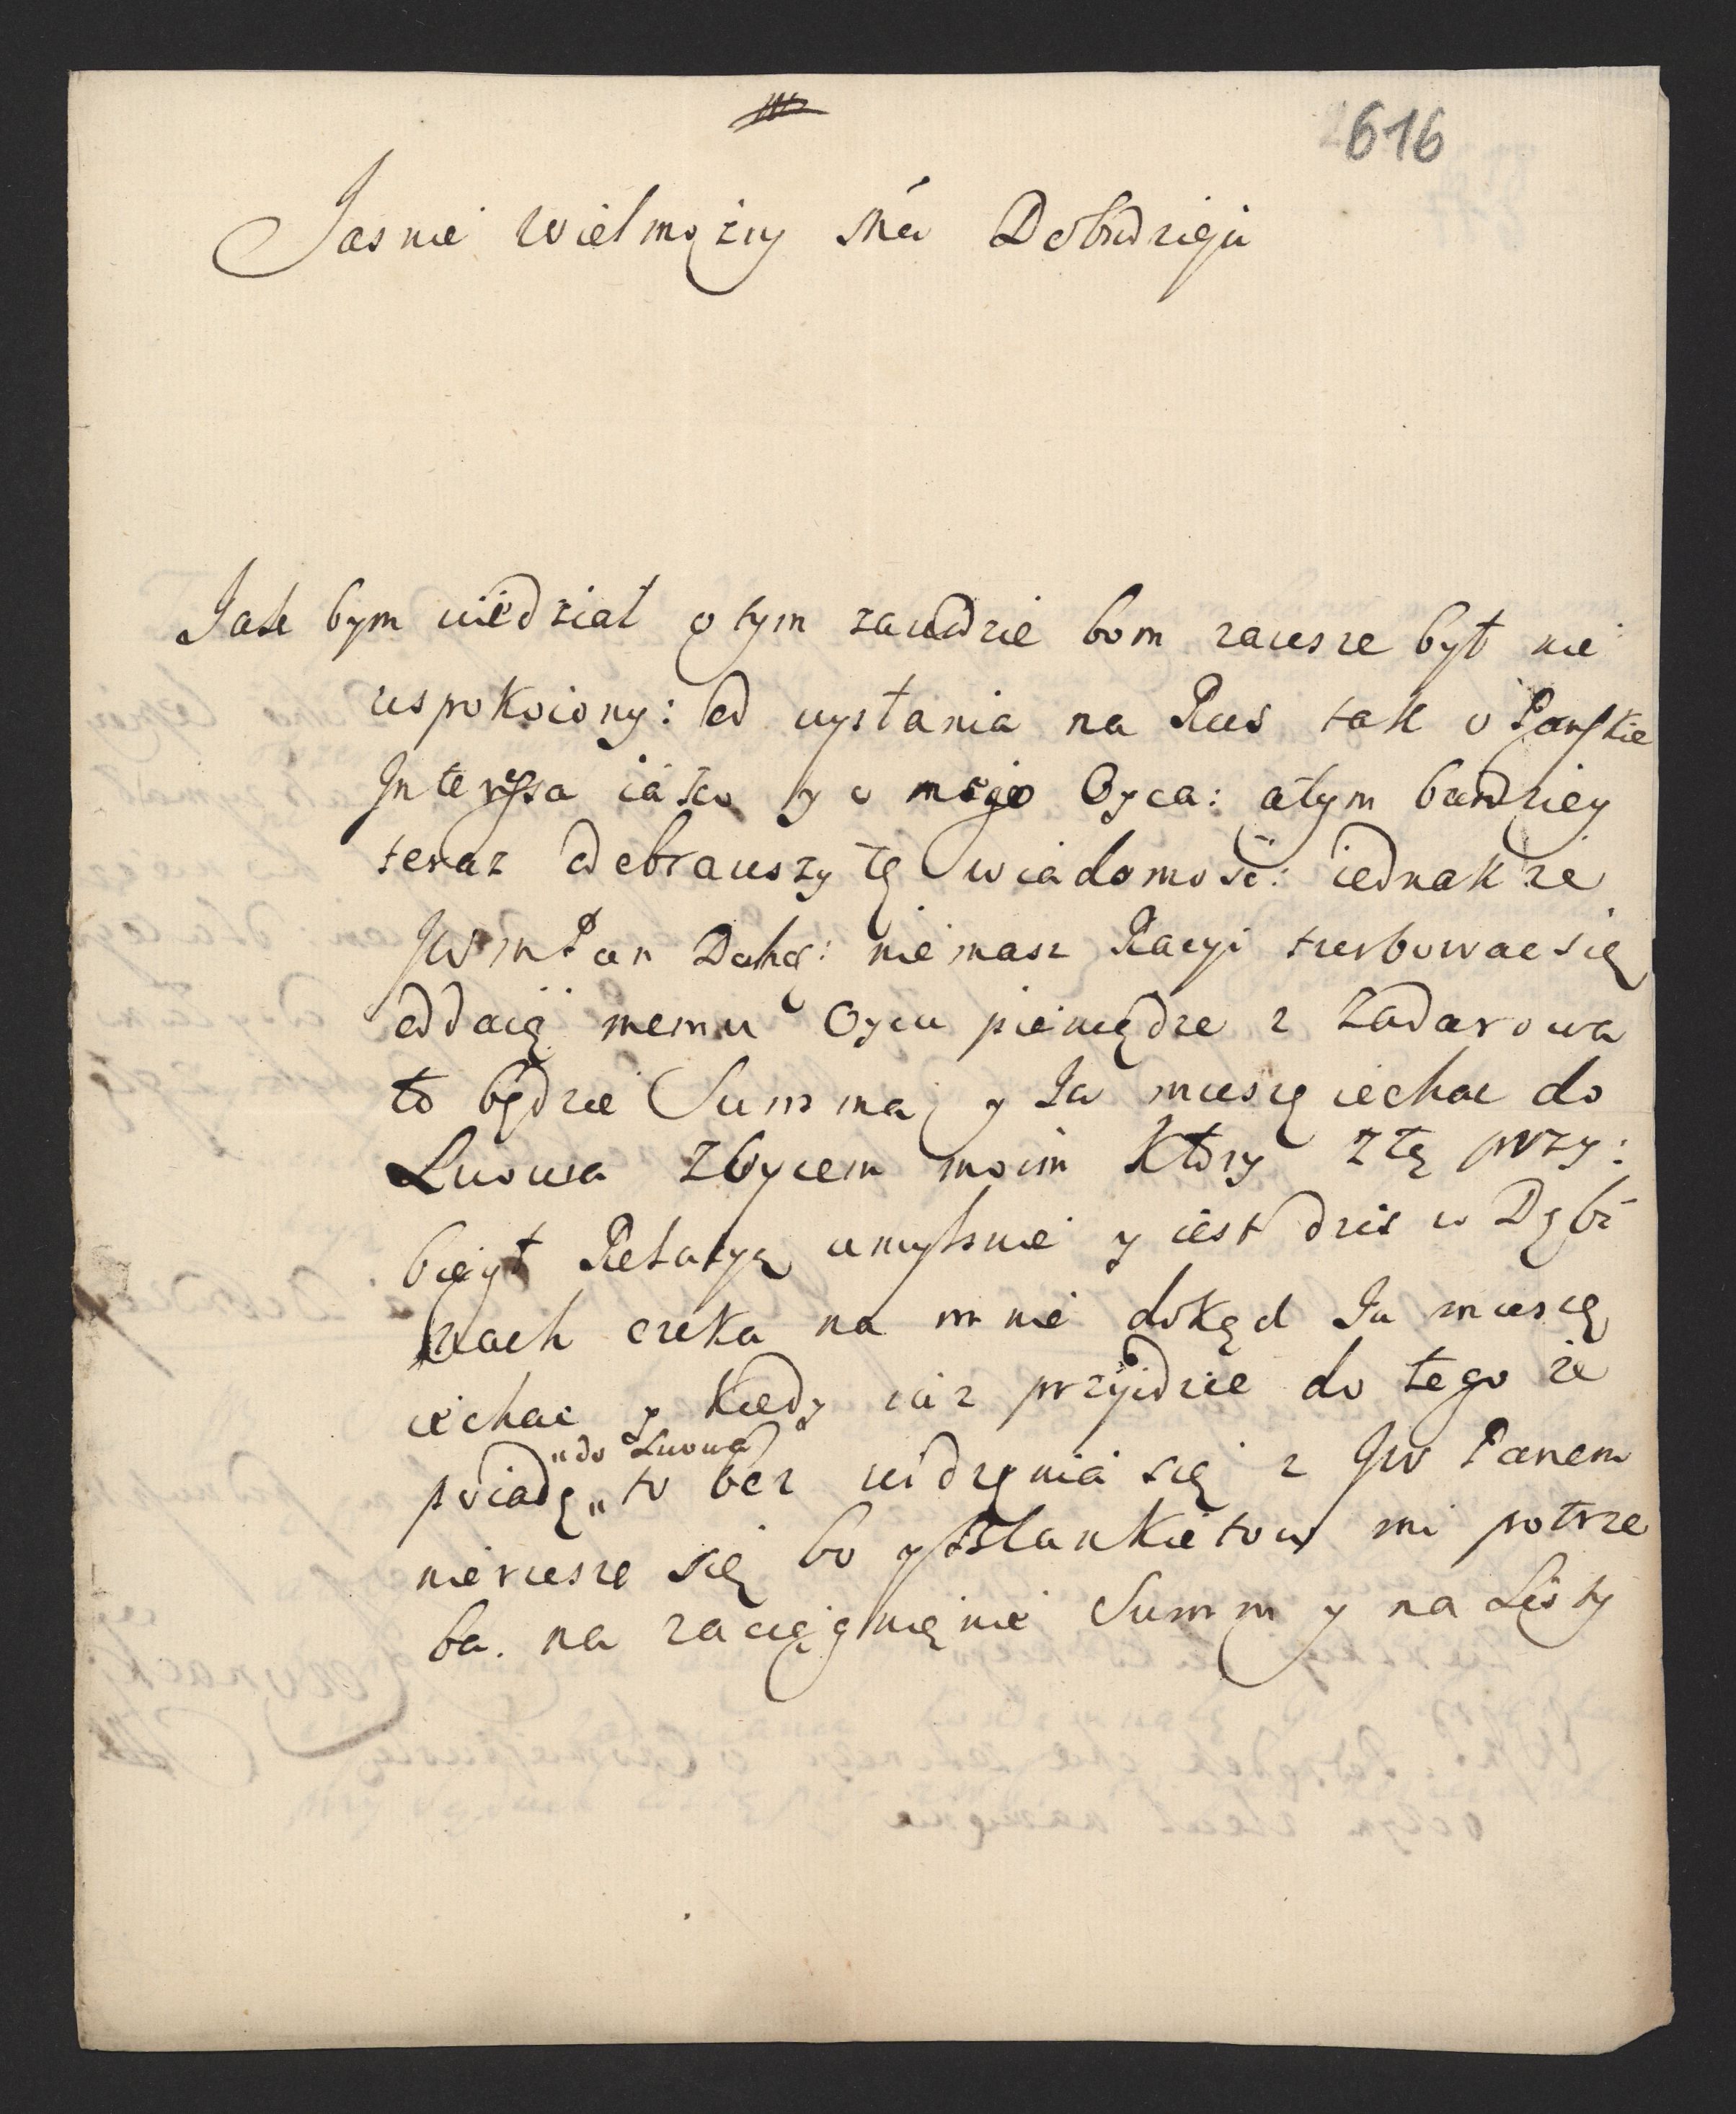 616
Jasnie Wielmożny Mci Dobrodzieju
Jak bym wiedział o tym zawdzie bom zawsze był nie
uspokoiony: od wysłania na Rus tak o Pańskie
Interessa iako y o mego Oyca: a tym bardziey
teraz odebrawszy tę wiadomość: iednakże
JWmPan Dobr: niemasz Racyi turbowac się
oddaią memu Oycu pieniędze z Zadarowa
to będzie Summa, y Ja muszę iechac do
Lwowa z Oycem moim Który z tą przy:
biegł Relacyą umyslnie y iest dzis w Dąbr
wach czeka na mnie dokąd Ja muszę
iechac y Kiedy iuz przyidzie do tego że
poiadę „do Lwowa" to bez widzęnia się z JW Panem
nierusze się bo y Blankietow mi potrze
ba. na zaciągnięnie Summ y na Listy